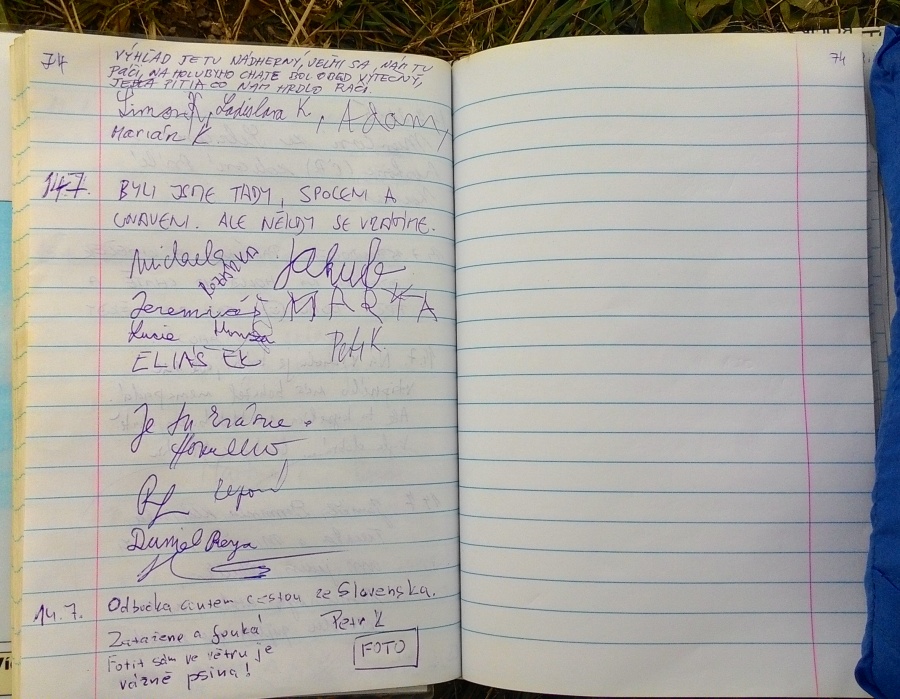 74
VÝHĽAD JE TU NÁDHERNÝ, VEĽMI SA NÁM TU
PÁČI, NA HOLUBYHO CHATE BOL OBED VÝTEČNÝ,
PITIA ČO NÁM HRDLO RÁČI.
Simon K, Ladislava K, Adam,
Marián K
14.7. BYLI JSME TADY, SPOCENI A
UNAVENI. ALE NĚKDY SE VRÁTÍME.
Michaela Jakub
Jeremiáš MARTA
Lucie Honza Petr K.
ELIÁŠ EK
Je tu krásne.
Daniel Reya
14.7. Odbočka autem cestou ze Slovenska.
Zataženo a fouká Petr K
Fotit sám ve větru je FOTO
vážně psina!
74